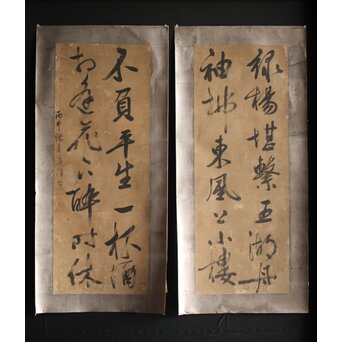 綠楊堪繫五湖舟
袖拂東風上小樓
不負平生一杯酒
相逢花下醉時休
丙申